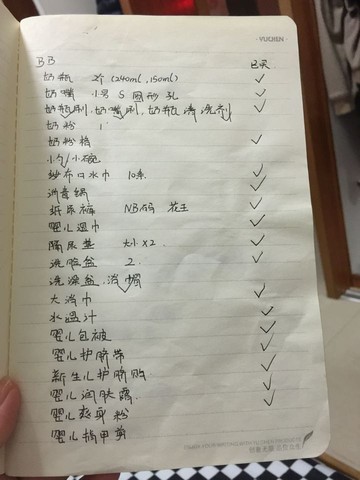 YUCHEN
BB 已买
奶瓶 2个 (240ml, 150ml) ✓
奶嘴 小号 S 圆形孔 ✓
奶瓶刷, 奶嘴刷, 奶瓶清洗剂 ✓
奶粉 1
奶粉格 ✓
小勺/小碗
纱布口水巾 10条 ✓
消毒锅 ✓
纸尿裤 NB码 花王 ✓
婴儿湿巾 ✓
隔尿垫 大小×2 ✓
洗脸盆 2 ✓
洗澡盆, 浴帽
大浴巾 ✓
水温计 ✓
婴儿包被 ✓
婴儿护脐带 ✓
新生儿护脐贴 ✓
婴儿润肤露 ✓
婴儿爽身粉
婴儿指甲剪